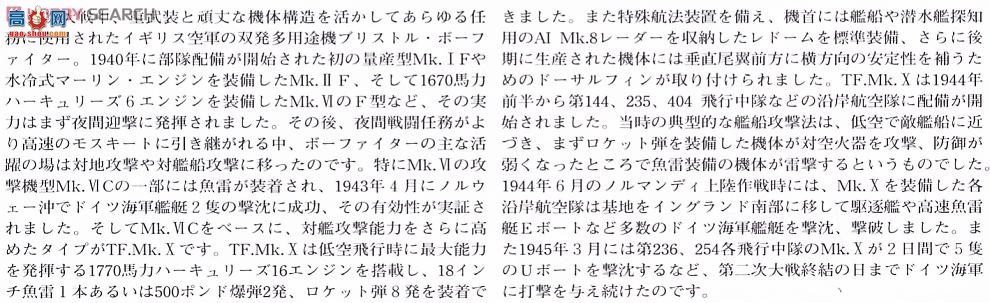 HOBBY SEARCH
高达网
gao8hou.com
重武装と頑丈な機体構造を活かしてあらゆる任
務に使用されたイギリス空軍の双発多用途機ブリストル・ボーフ
ァイター。1940年に部隊配備が開始された初の量産型Mk.ⅠFや
水冷式マーリン・エンジンを装備したMk.ⅡF、そして1670馬力
ハーキュリーズ6エンジンを装備したMk.ⅥのF型など、その実
力はまず夜間迎撃に発揮されました。その後、夜間戦闘任務がよ
り高速のモスキートに引き継がれる中、ボーファイターの主な活
躍の場は対地攻撃や対艦船攻撃に移ったのです。特にMk.Ⅵの攻
撃機型Mk.ⅥCの一部には魚雷が装着され、1943年4月にノルウ
ェー沖でドイツ海軍艦艇2隻の撃沈に成功、その有効性が実証さ
れました。そしてMk.ⅥCをベースに、対艦攻撃能力をさらに高
めたタイプがTF.Mk.Ⅹです。TF.Mk.Ⅹは低空飛行時に最大能力
を発揮する1770馬力ハーキュリーズ16エンジンを搭載し、18イン
チ魚雷1本あるいは500ポンド爆弾2発、ロケット弾8発を装着で
きました。また特殊航法装置を備え、機首には艦船や潜水艦探知
用のAI Mk.8レーダーを収納したレドームを標準装備、さらに後
期に生産された機体には垂直尾翼前方に横方向の安定性を補うた
めのドーサルフィンが取り付けられました。TF.Mk.Ⅹは1944年
前半から第144、235、404 飛行中隊などの沿岸航空隊に配備が開
始されました。当時の典型的な艦船攻撃法は、低空で敵艦船に近
づき、まずロケット弾を装備した機体が対空火器を攻撃、防御が
弱くなったところで魚雷装備の機体が雷撃するというものでした。
1944年6月のノルマンディ上陸作戦時には、Mk.Ⅹを装備した各
沿岸航空隊は基地をイングランド南部に移して駆逐艦や高速魚雷
艇Eボートなど多数のドイツ海軍艦艇を撃沈、撃破しました。ま
た1945年3月には第236、254各飛行中隊のMk.Ⅹが2日間で5隻
のUボートを撃沈するなど、第二次大戦終結の日までドイツ海軍
に打撃を与え続けたのです。